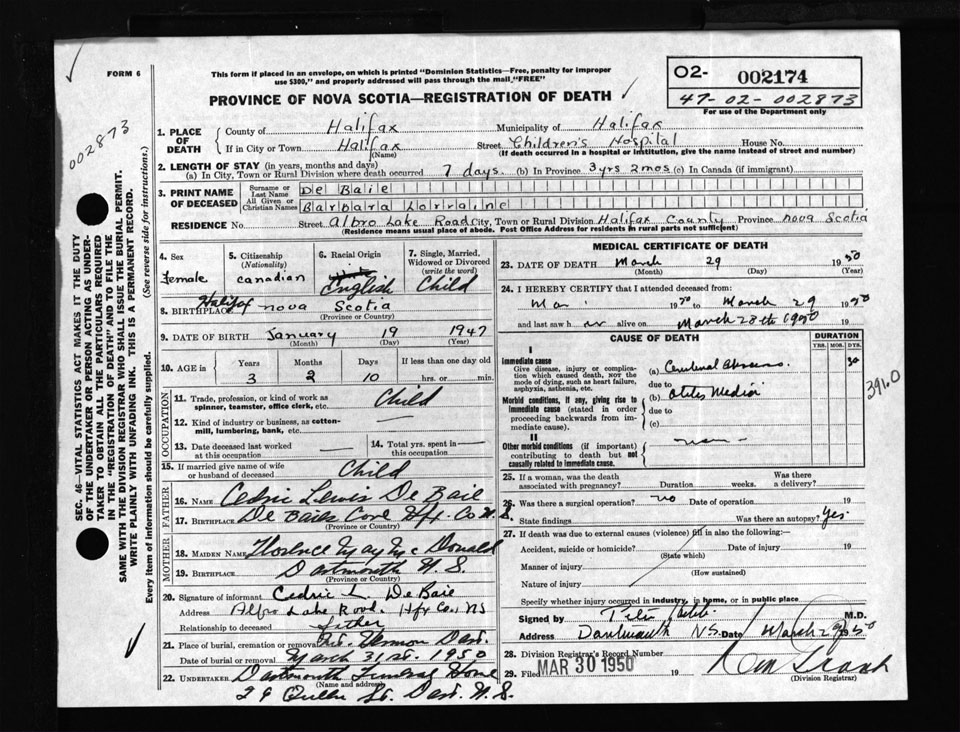 FORM 6
This form if placed in an envelope, on which is printed "Dominion Statistics—Free, penalty for improper
use $300," and properly addressed will pass through the mail "FREE"
PROVINCE OF NOVA SCOTIA—REGISTRATION OF DEATH
02- 002174
47-02-002873
For use of the Department only
002873
SEC. 46—VITAL STATISTICS ACT MAKES IT THE DUTY
OF THE UNDERTAKER OR PERSON ACTING AS UNDER-
TAKER TO OBTAIN ALL THE PARTICULARS REQUIRED
IN THE "REGISTRATION OF DEATH" AND TO FILE THE
SAME WITH THE DIVISION REGISTRAR WHO SHALL ISSUE THE BURIAL PERMIT.
WRITE PLAINLY WITH UNFADING INK. THIS IS A PERMANENT RECORD.
Every item of information should be carefully supplied. (See reverse side for instructions.)
1. PLACE OF DEATH County of Halifax Municipality of Halifax
If in City or Town Halifax (Name) Street Children's Hospital House No.
(If death occurred in a hospital or institution, give the name instead of street and number)
2. LENGTH OF STAY (in years, months and days)
(a) In City, Town or Rural Division where death occurred 7 days. (b) In Province 3 yrs 2 mos (c) In Canada (if immigrant)
3. PRINT NAME OF DECEASED Surname or Last Name De Baie
All Given or Christian Names Barbara Lorraine
RESIDENCE No. Street Albro Lake Road City, Town or Rural Division Halifax County Province Nova Scotia
(Residence means usual place of abode. Post Office Address for residents in rural parts not sufficient)
4. Sex Female
5. Citizenship (Nationality) Canadian
6. Racial Origin English
7. Single, Married, Widowed or Divorced (write the word) Child
8. BIRTHPLACE Halifax Nova Scotia
(Province or Country)
9. DATE OF BIRTH January 19 1947
(Month) (Day) (Year)
10. AGE in Years Months Days If less than one day old
3 2 10 hrs. or min.
OCCUPATION
11. Trade, profession, or kind of work as
spinner, teamster, office clerk, etc. Child
12. Kind of industry or business, as cotton-
mill, lumbering, bank, etc.
13. Date deceased last worked
at this occupation
14. Total yrs. spent in
this occupation
15. If married give name of wife
or husband of deceased Child
FATHER
16. NAME Cedric Lewis De Baie
17. BIRTHPLACE De Baies Cove Hfx. Co. N.S.
(Province or Country)
MOTHER
18. MAIDEN NAME Florence May Mc Donald
19. BIRTHPLACE Dartmouth N.S.
(Province or Country)
20. Signature of informant Cedric L. De Baie
Address Albro Lake Road. Hfx Co., NS
Relationship to deceased father
21. Place of burial, cremation or removal Mt. Hermon Dart.
Date of burial or removal March 31st. 1950
22. UNDERTAKER Dartmouth Funeral Home
(Name and address)
Queen St. Dart. N.S.
MEDICAL CERTIFICATE OF DEATH
23. DATE OF DEATH March 29 1950
(Month) (Day) (Year)
24. I HEREBY CERTIFY that I attended deceased from:
Mar 1950 to March 29 1950
and last saw her alive on March 28th 1950 19
CAUSE OF DEATH
DURATION
YRS. MOS. DYS.
I
Immediate cause
Give disease, injury or complica-
tion which caused death, NOT the
mode of dying, such as heart failure,
asphyxia, asthenia, etc.
(a) Cerebral Abscess. 30
due to
Morbid conditions, if any, giving rise to
immediate cause (stated in order
proceeding backwards from im-
mediate cause).
(b) Otitis Media
due to
(c)
391.0
II
Other morbid conditions (if important)
contributing to death but not
causally related to immediate cause.
none
25. If a woman, was the death
associated with pregnancy? Duration weeks. Was there
a delivery?
26. Was there a surgical operation? no Date of operation 19
State findings Was there an autopsy? Yes
27. If death was due to external causes (violence) fill in also the following:
Accident, suicide or homicide? Date of injury 19
(State which)
Manner of injury
(How sustained)
Nature of injury
Specify whether injury occurred in industry, in home, or in public place
Signed by M.D.
Address Dartmouth NS. Date March 29 1950
28. Division Registrar's Record Number
29. Filed MAR 30 1950 19
(Division Registrar)